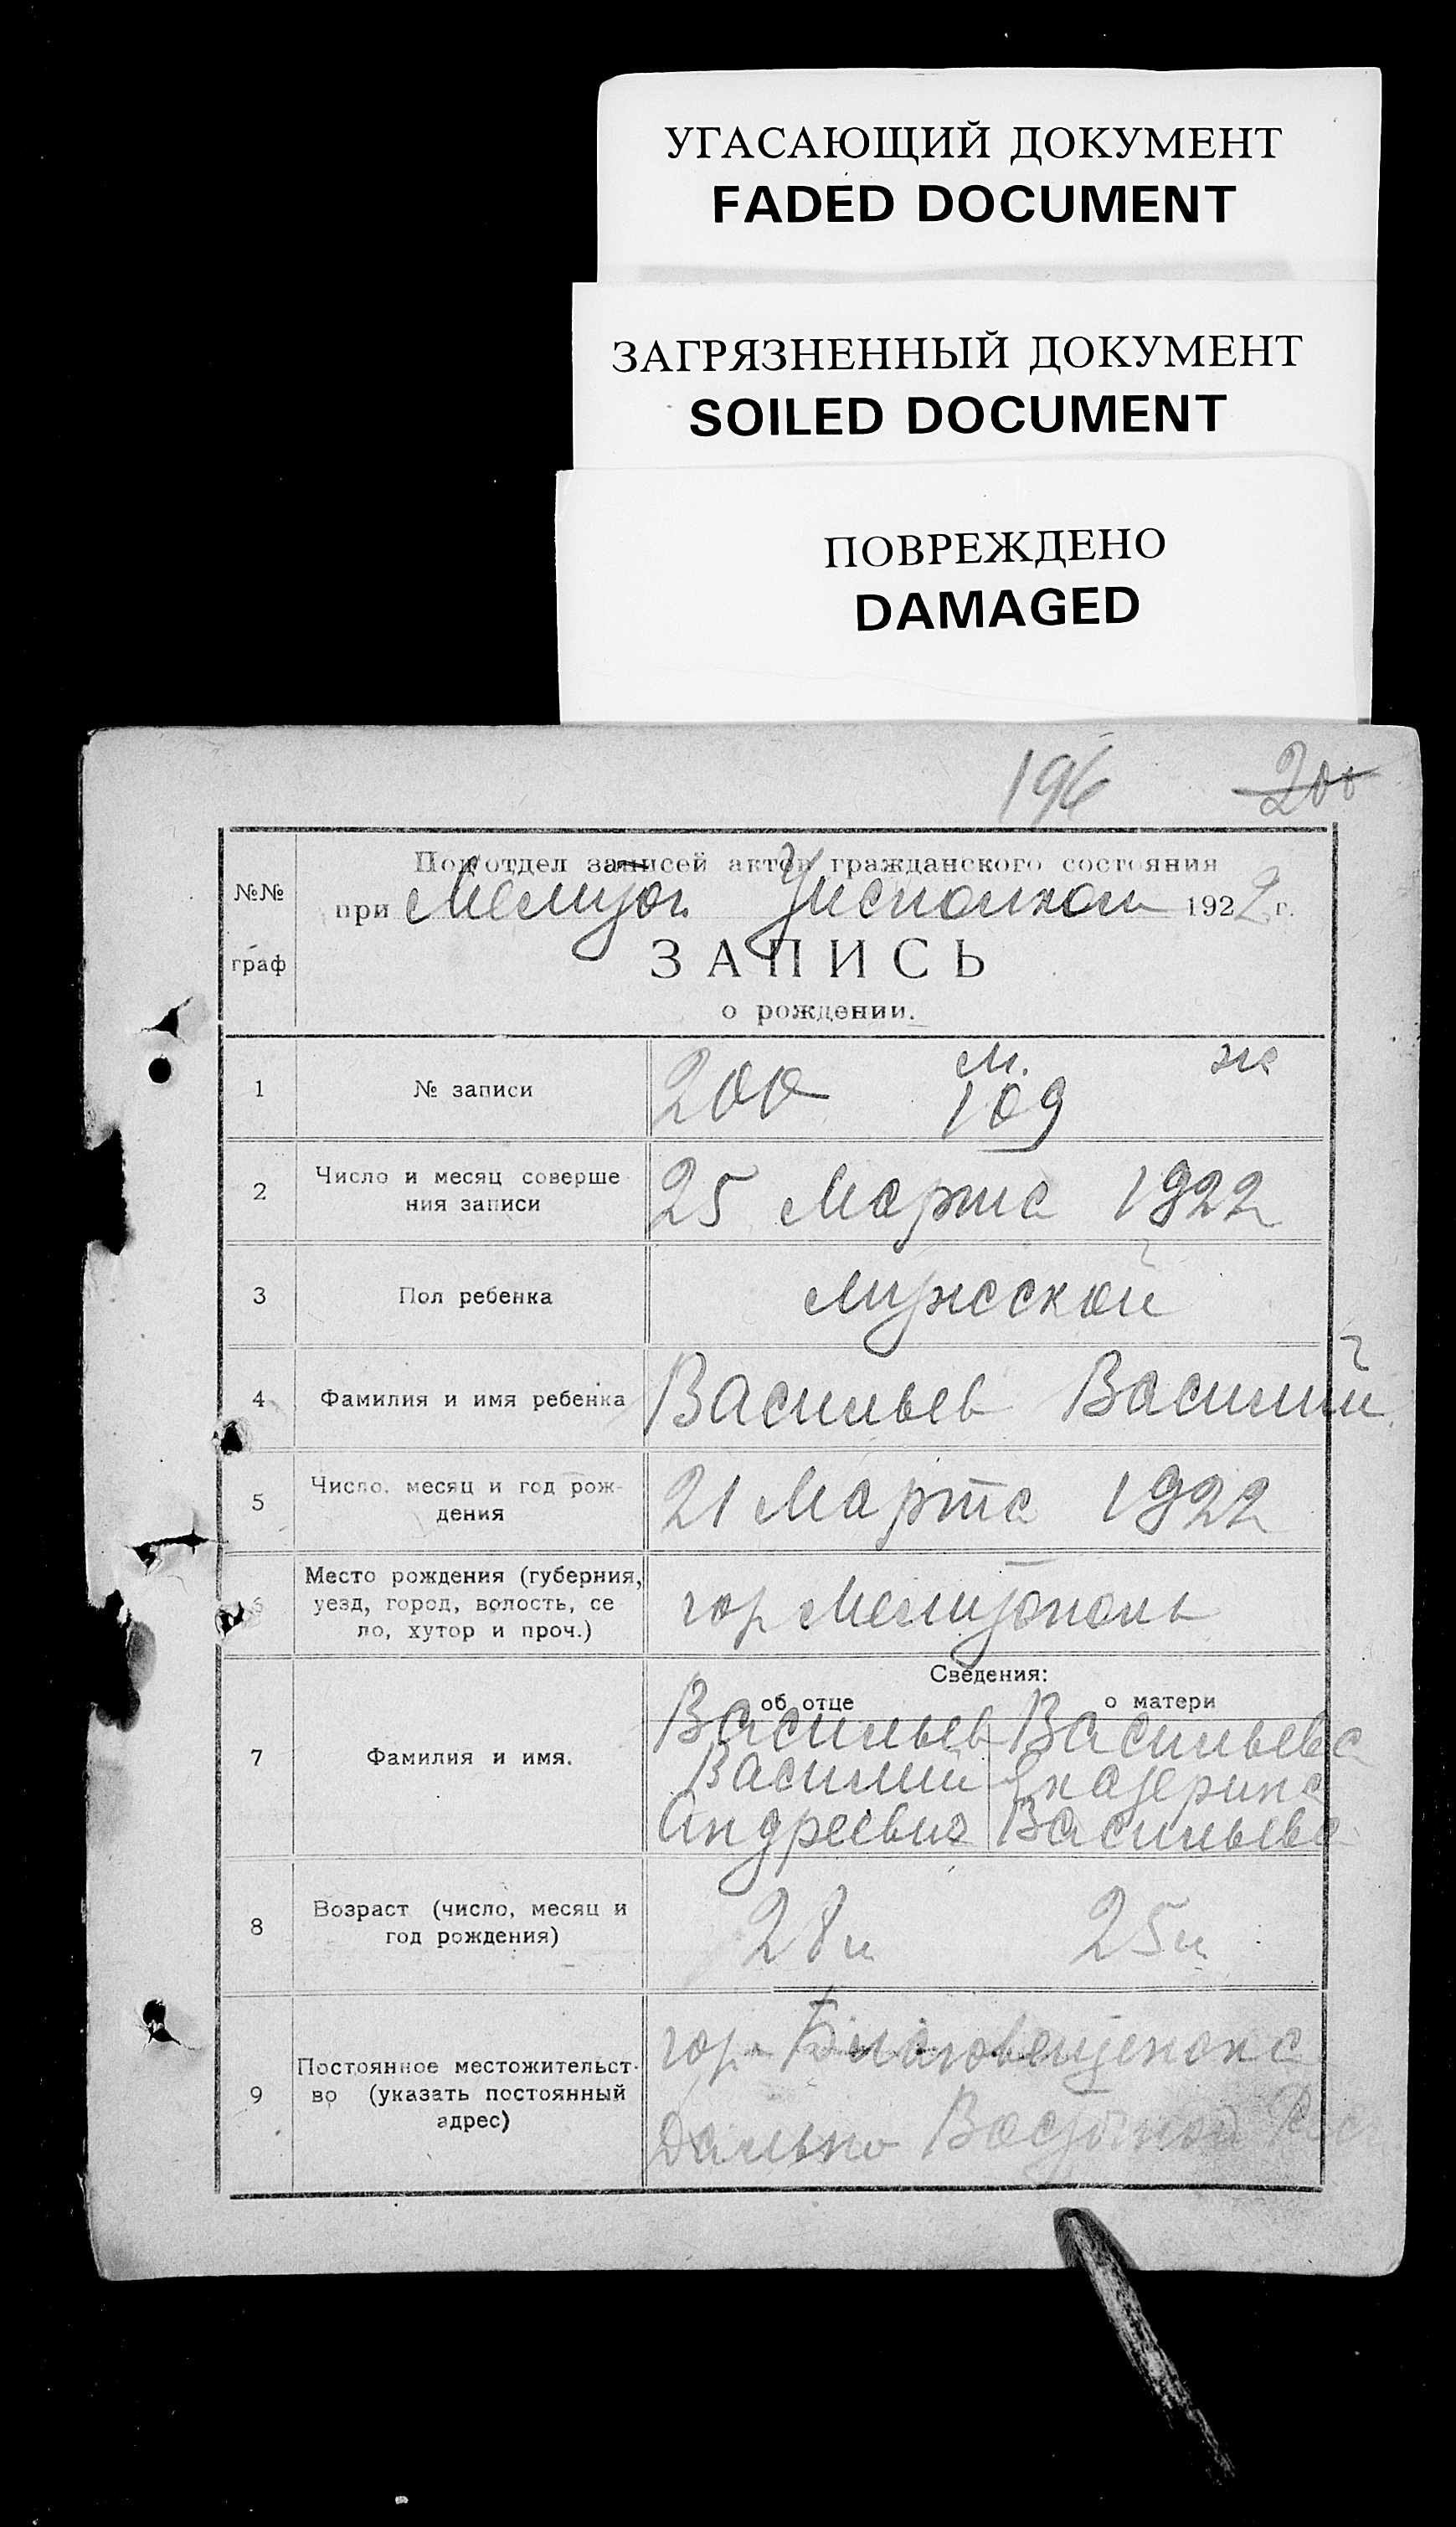 УГАСАЮЩИЙ ДОКУМЕНТ
FADED DOCUMENT
ЗАГРЯЗНЕННЫЙ ДОКУМЕНТ
SOILED DOCUMENT
ПОВРЕЖДЕНО
DAMAGED
196 200
№№ граф
Подотдел записей актов гражданского состояния
при Мелитоп. Уисполком 1922 г.
ЗАПИСЬ
о рождении.
м. ж
1 № записи 200 109
2 Число и месяц соверше
ния записи 25 Марта 1922
3 Пол ребенка мужской
4 Фамилия и имя ребенка Васильев Василий
5 Число, месяц и год рож-
дения 21 Марта 1922
6 Место рождения (губерния,
уезд, город, волость, се
ло, хутор и проч.) гор Мелитополь
Сведения:
об отце о матери
7 Фамилия и имя.
Васильев Васильева
Василий Екатерина
Андреевич Васильевна
8 Возраст (число, месяц и
год рождения) 28 л 25 л
9 Постоянное местожительст-
во (указать постоянный
адрес)
гор. Благовещенска
Дально Восточной